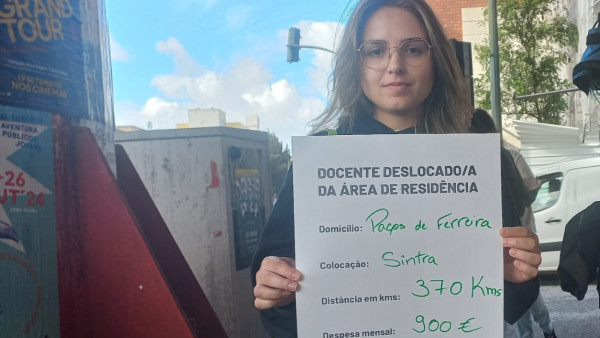 GRAND
TOUR
19 SETEMBRO
NOS CINEMAS
AVENTURA
PÚBLICO
-26
UT'24
DOCENTE DESLOCADO/A
DA ÁREA DE RESIDÊNCIA
Domicílio: Paços de Ferreira
Colocação: Sintra
Distância em kms: 370 Kms
Despesa mensal: 900 €